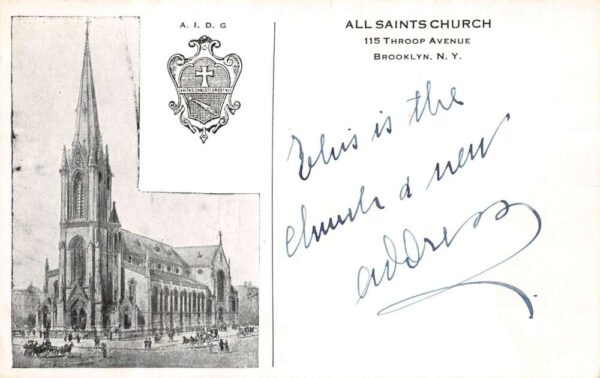 A. I. D. G
ALL SAINTS CHURCH
115 THROOP AVENUE
BROOKLYN, N. Y.
This is the
church & new
address